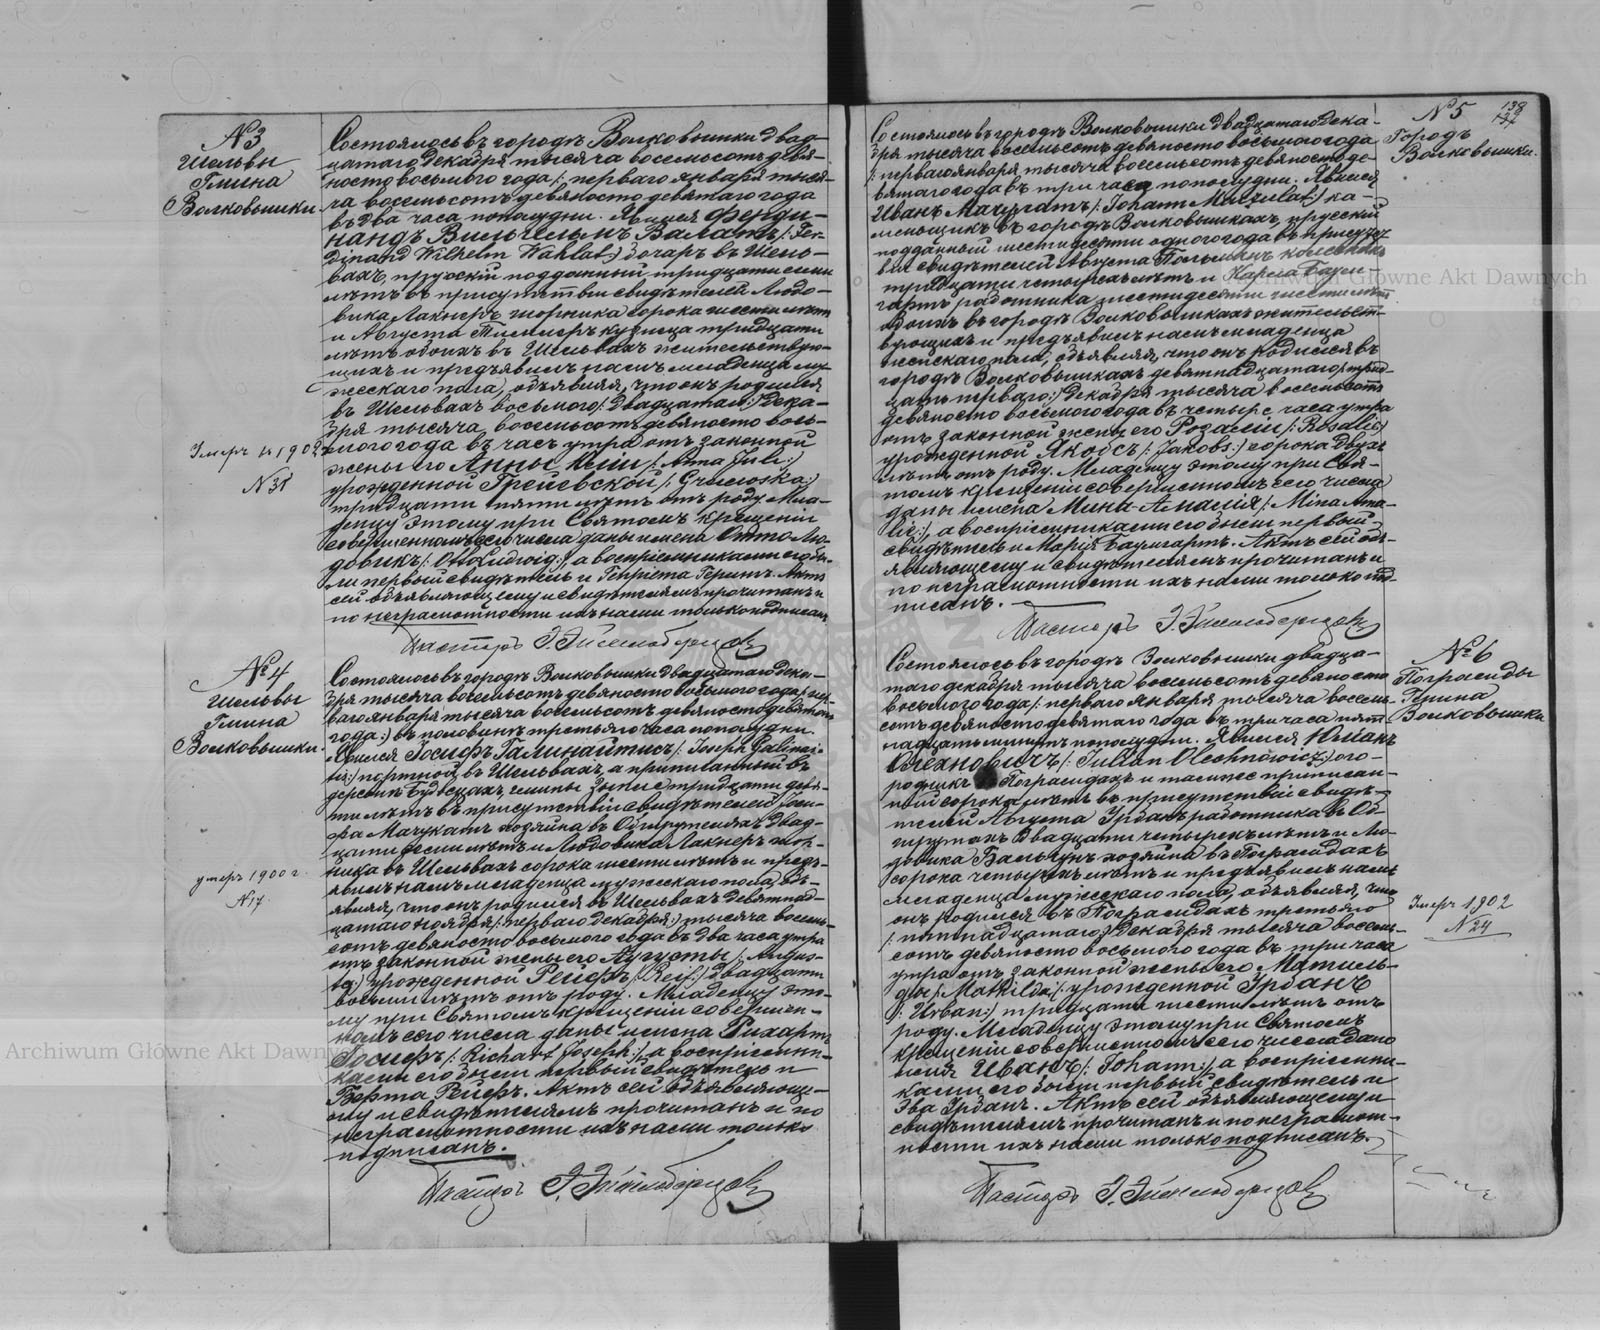 №3
Шельвы
Гмина
Волковышки.
Состоялось въ городѣ Волковышки двад-
цатаго Декабря тысяча восемьсотъ девя-
носто восьмого года /: перваго января тыся-
ча восемьсотъ девяносто девятаго года
въ два часа пополудни. Явился Ферди-
нандъ Вильгельмъ Валатъ /: Fer-
dinand Wilhelm Wahlat :/ въ Шель-
вахъ, прусскій подданный тридцати семи
лѣтъ въ присутствіи свидѣтелей Людо-
вика Лакнеръ шорника сорока шести лѣтъ
и Августа кузнеца тридцати
лѣтъ обоихъ въ Шельвахъ жительствую-
щихъ и предъявилъ намъ младенца му-
жескаго пола, объявляя, что онъ родился
въ Шельвахъ восьмого /: двадцатаго :/ Дека-
бря тысяча восемьсотъ девяносто вось-
мого года въ часъ утра отъ законной
жены его Анны Юліи /: Anna Juli :/
урожденной Грейевской
тридцати пяти лѣтъ отъ роду. Мла-
денцу этому при Святомъ крещеніи
совершенномъ сего числа даны имена Отто Лю-
довикъ /: Otto Ludwig :/, а воспріемниками его бы-
ли первый свидѣтель и Генріета Герингъ. Актъ
сей объявляющему и свидѣтелямъ прочитанъ и
по неграмотности ихъ нами только подписанъ.
Пасторъ
Умеръ 1902
№ 31
№4
Шельвы
Гмина
Волковышки.
Состоялось въ городѣ Волковышки двадцатаго Дека-
бря тысяча восемьсотъ девяносто восьмого года /: пер-
ваго января тысяча восемьсотъ девяносто девятаго
года :/ въ половинѣ третьяго часа пополудни.
Явился Іосифъ Галинайтисъ /: Joseph Galinai-
tis :/ портной въ Шельвахъ, а приписанный въ
деревнѣ гмины тридцати девя-
ти лѣтъ въ присутствіи свидѣтелей Іоси-
фа Мачукатъ хозяина въ двад-
цати семи лѣтъ и Людовика Лакнеръ шор-
ника въ Шельвахъ сорока шести лѣтъ и предъ-
явилъ намъ младенца мужескаго пола, объ-
являя, что онъ родился въ Шельвахъ девятнад-
цатаго ноября /: перваго Декабря :/ тысяча восемь-
сотъ девяносто восьмого года въ два часа утра
отъ законной жены его Августы /: Augus-
ta :/ урожденной Рейфъ /: Reif :/ двадцати
восьми лѣтъ отъ роду. Младенцу это-
му при Святомъ крещеніи совершен-
номъ сего числа даны имена Рихартъ
Іосифъ /: Richart Joseph :/, а воспріемни-
ками его были первый свидѣтель и
Берта Рейфъ. Актъ сей объявляюще-
му и свидѣтелямъ прочитанъ и по
неграмотности ихъ нами только
подписанъ.
Пасторъ
умеръ 1900 г.
№ 17.
№5
138
Городъ
Волковышки.
Состоялось въ городѣ Волковышки двадцатаго Дека-
бря тысяча восемьсотъ девяносто восьмого года
/: перваго января тысяча восемьсотъ девяносто де-
вятаго года въ три часа пополудни. Явился
Иванъ Мачулатъ /: Johann Maczulat :/ ка-
менщикъ въ городѣ Волковышкахъ, прусскій
подданный шестидесяти одного года въ присутст-
віи свидѣтелей Августа
тридцати четырехъ лѣтъ и Карла Баум-
гартъ работника шестидесяти шести лѣтъ
обоихъ въ городѣ Волковышкахъ жительст-
вующихъ и предъявилъ намъ младенца
женскаго пола, объявляя, что онъ родился въ
городѣ Волковышкахъ девятнадцатаго /: трид-
цать перваго :/ Декабря тысяча восемьсотъ
девяносто восьмого года въ четыре часа утра
отъ законной жены его Розаліи /: Rosalie :/
урожденной Якобсъ /: Jakobs :/ сорока двухъ
лѣтъ отъ роду. Младенцу этому при Свя-
томъ крещеніи совершенномъ сего числа
даны имена Мина-Амалія /: Mina Ama-
lie :/, а воспріемниками его были первый
свидѣтель и Марія Баумгартъ. Актъ сей объ-
являющему и свидѣтелямъ прочитанъ и
по неграмотности ихъ нами только под-
писанъ.
Пасторъ
№6
Пограсиды
Гмина
Волковышки.
Состоялось въ городѣ Волковышки двадца-
таго декабря тысяча восемьсотъ девяносто
восьмого года /: перваго января тысяча восемь-
сотъ девяносто девятаго года въ три часа пят-
надцать минутъ пополудни. Явился Юліанъ
Олехновичъ /: Julian Olechnowicz :/ ого-
родникъ Пограсидахъ и тамже приписан-
ный сорока лѣтъ въ присутствіи свидѣ-
телей Августа Урбанъ работника въ
двадцати четырехъ лѣтъ и Лю-
довика хозяина въ Пограсидахъ
сорока четырехъ лѣтъ и предъявилъ намъ
младенца мужескаго пола, объявляя, что
онъ родился въ Пограсидахъ третьяго
/: пятнадцатаго :/ Декабря тысяча восемь-
сотъ девяносто восьмого года въ три часа
утра отъ законной жены его Матиль-
ды /: Mathilda :/ урожденной Урбанъ
/: Urban :/ тридцати шести лѣтъ отъ
роду. Младенцу этому при Святомъ
крещеніи совершенномъ сего числа дано
имя Иванъ /: Johann :/, а воспріемни-
ками его были первый свидѣтель и
Эва Урбанъ. Актъ сей объявляющему и
свидѣтелямъ прочитанъ и по неграмот-
ности ихъ нами только подписанъ.
Пасторъ
Умеръ 1902
№ 24
Archiwum Główne Akt Dawnych
Archiwum Główne Akt Dawnych